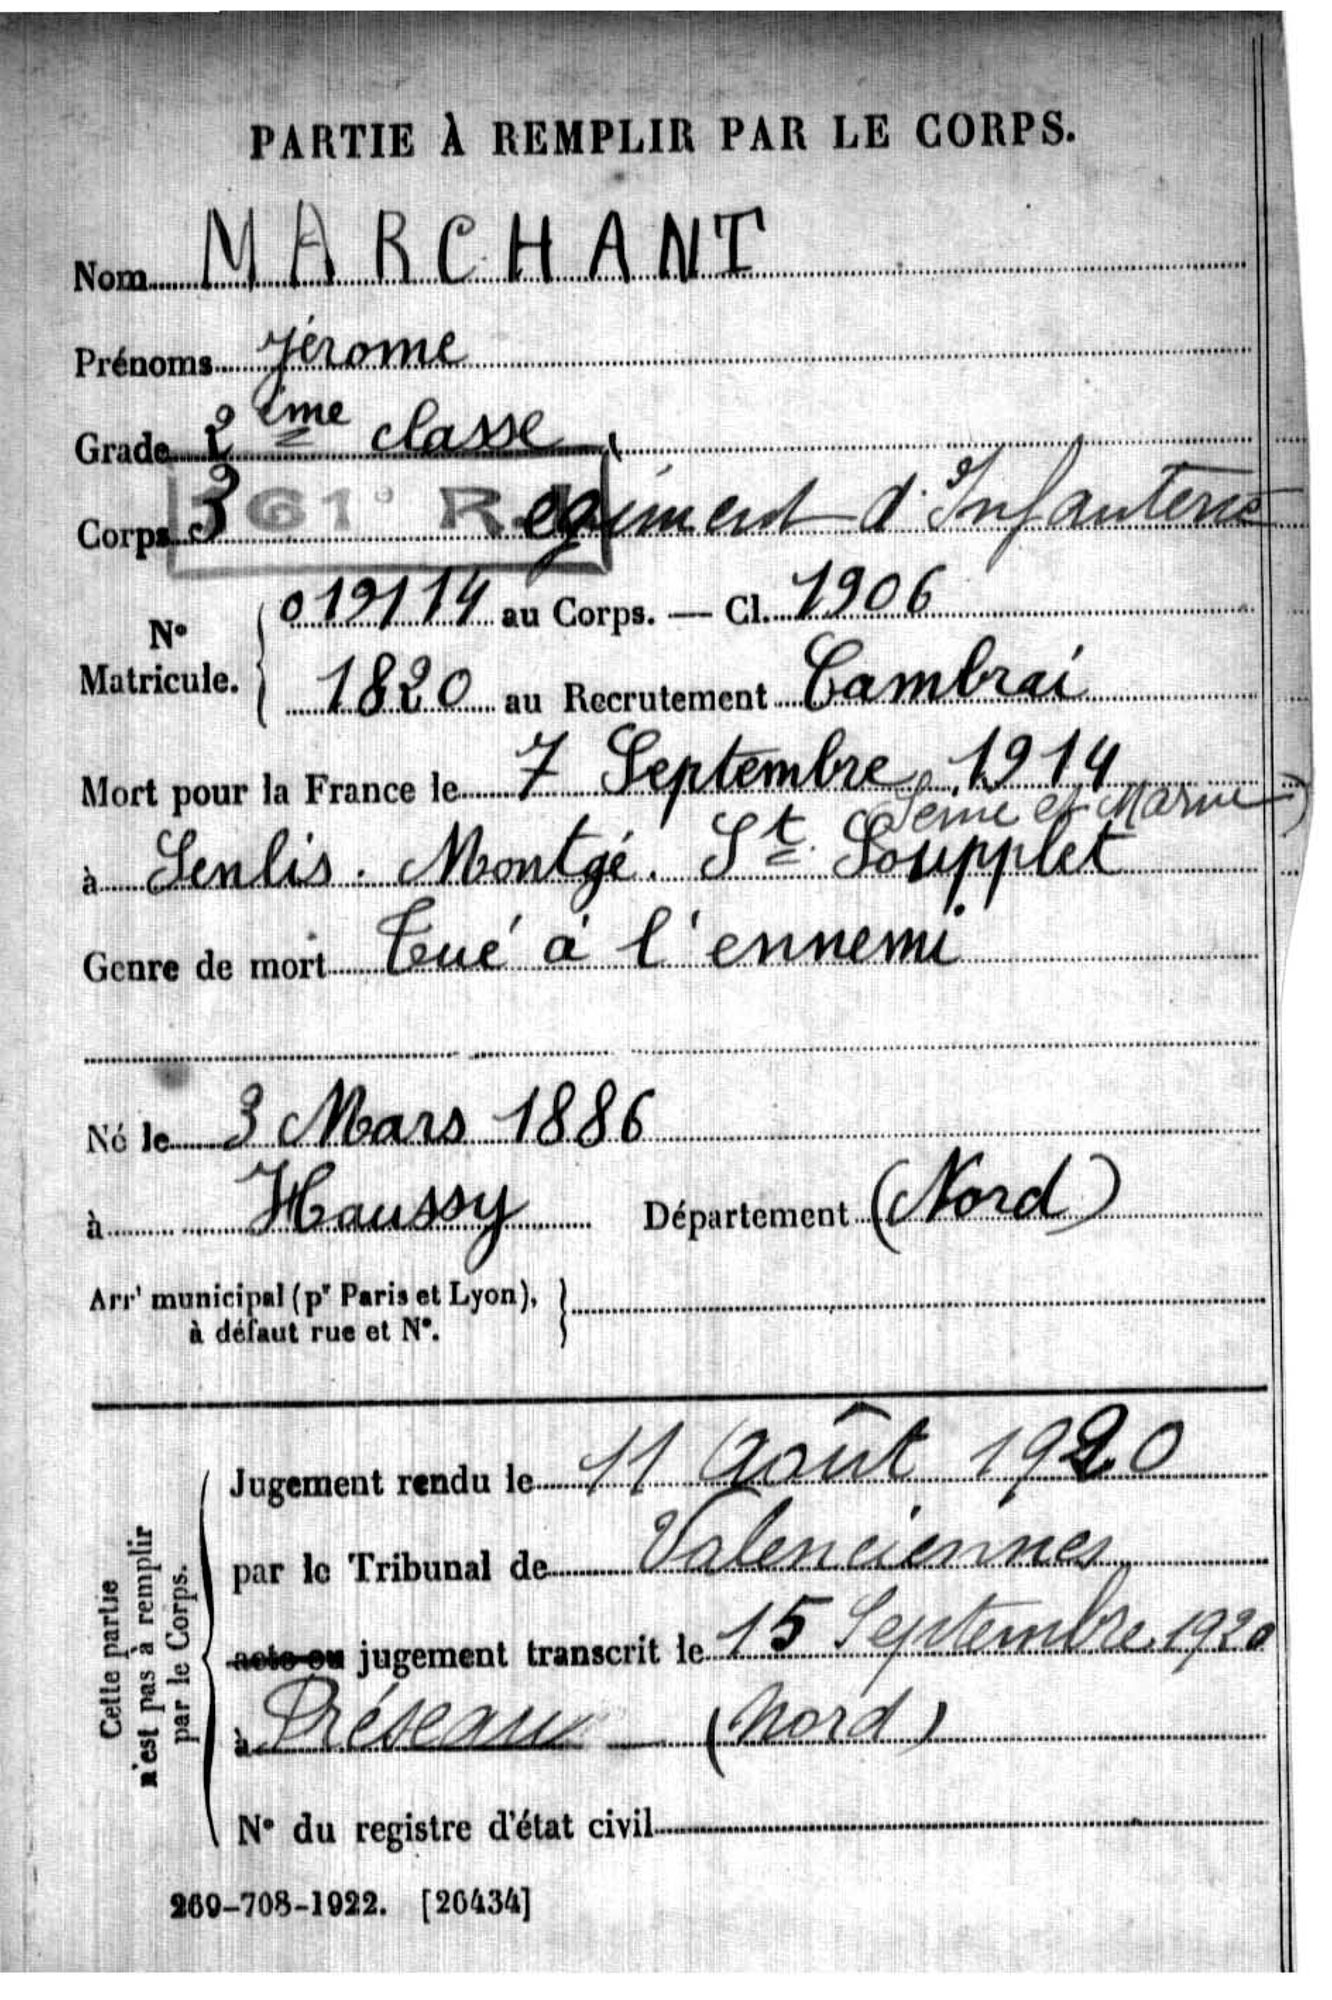 PARTIE À REMPLIR PAR LE CORPS.
Nom MARCHANT
Prénoms Jérome
Grade 2ème classe
Corps 361° Regiment d'Infanterie
N° Matricule. { 019114 au Corps. — Cl. 1906
1820 au Recrutement Cambrai
Mort pour la France le 7 Septembre 1914
(Seine et Marne)
à Senlis. Montgé. St Soupplet
Genre de mort Tué à l'ennemi
Né le 3 Mars 1886
à Haussy Département (Nord)
Arrt municipal (pr Paris et Lyon),
à défaut rue et N°.
Cette partie
n'est pas à remplir
par le Corps.
Jugement rendu le 11 Août 1920
par le Tribunal de Valenciennes
acte ou jugement transcrit le 15 Septembre 1920
à Préseau (Nord)
N° du registre d'état civil
269-708-1922. [26434]